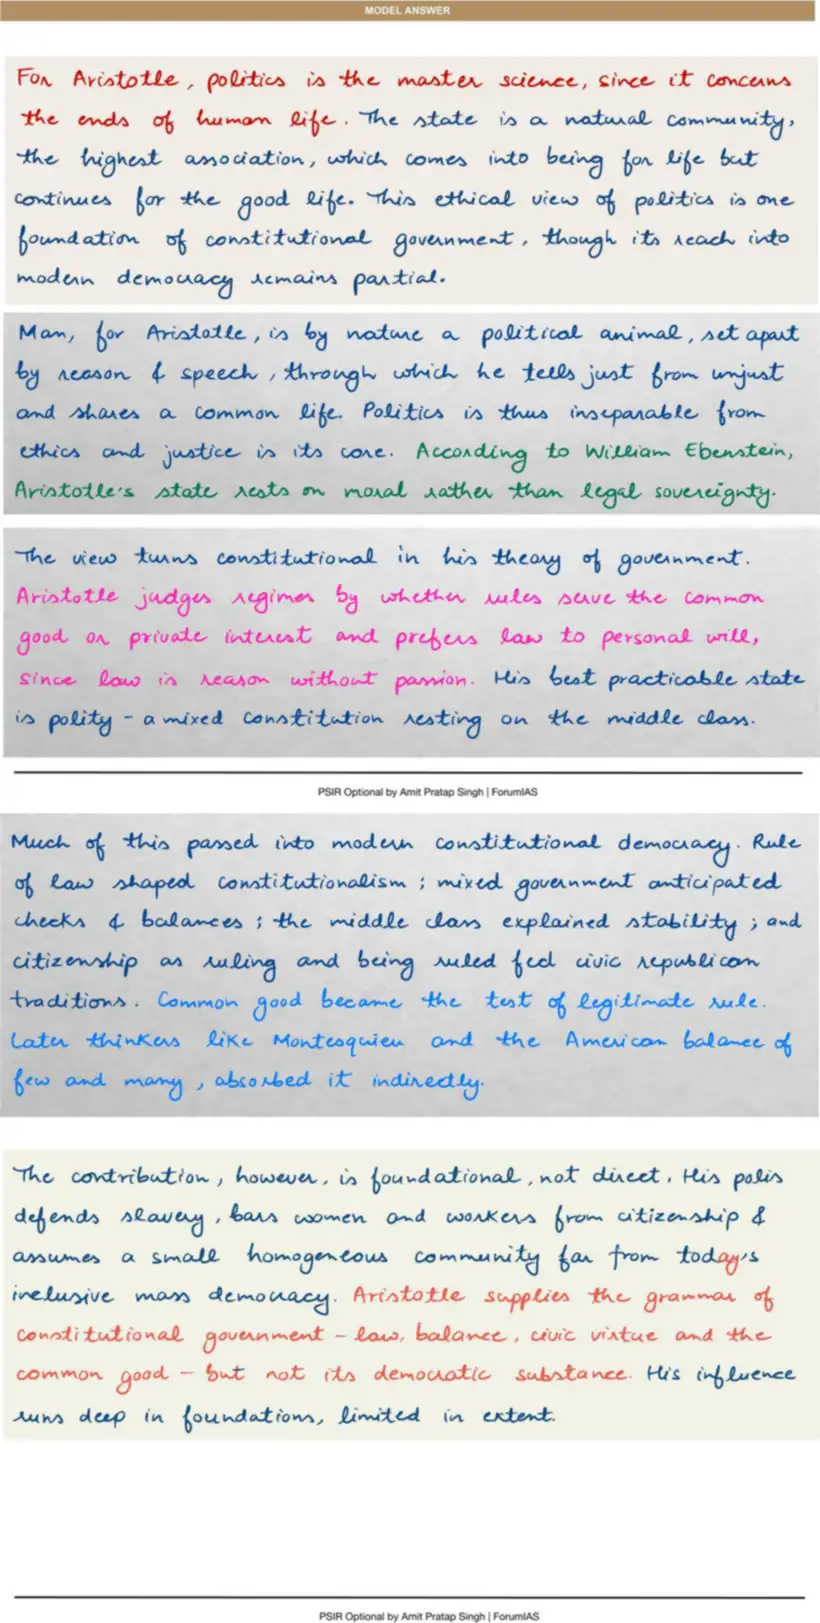 MODEL ANSWER
For Aristotle, politics is the master science, since it concerns
the ends of human life. The state is a natural community,
the highest association, which comes into being for life but
continues for the good life. This ethical view of politics is one
foundation of constitutional government, though its reach into
modern democracy remains partial.
Man, for Aristotle, is by nature a political animal, set apart
by reason & speech, through which he tells just from unjust
and shares a common life. Politics is thus inseparable from
ethics and justice is its core. According to William Ebenstein,
Aristotle's state rests on moral rather than legal sovereignty.
The view turns constitutional in his theory of government.
Aristotle judges regimes by whether rules serve the common
good or private interest and prefers law to personal will,
since law is reason without passion. His best practicable state
is polity - a mixed constitution resting on the middle class.
PSIR Optional by Amit Pratap Singh | ForumIAS
Much of this passed into modern constitutional democracy. Rule
of law shaped constitutionalism ; mixed government anticipated
checks & balances ; the middle class explained stability ; and
citizenship as ruling and being ruled fed civic republican
traditions. Common good became the test of legitimate rule.
Later thinkers like Montesquieu and the American balance of
few and many, absorbed it indirectly.
The contribution, however, is foundational, not direct. His polis
defends slavery, bars women and workers from citizenship &
assumes a small homogeneous community far from today's
inclusive mass democracy. Aristotle supplies the grammar of
constitutional government - law, balance, civic virtue and the
common good - but not its democratic substance. His influence
runs deep in foundations, limited in extent.
PSIR Optional by Amit Pratap Singh | ForumIAS